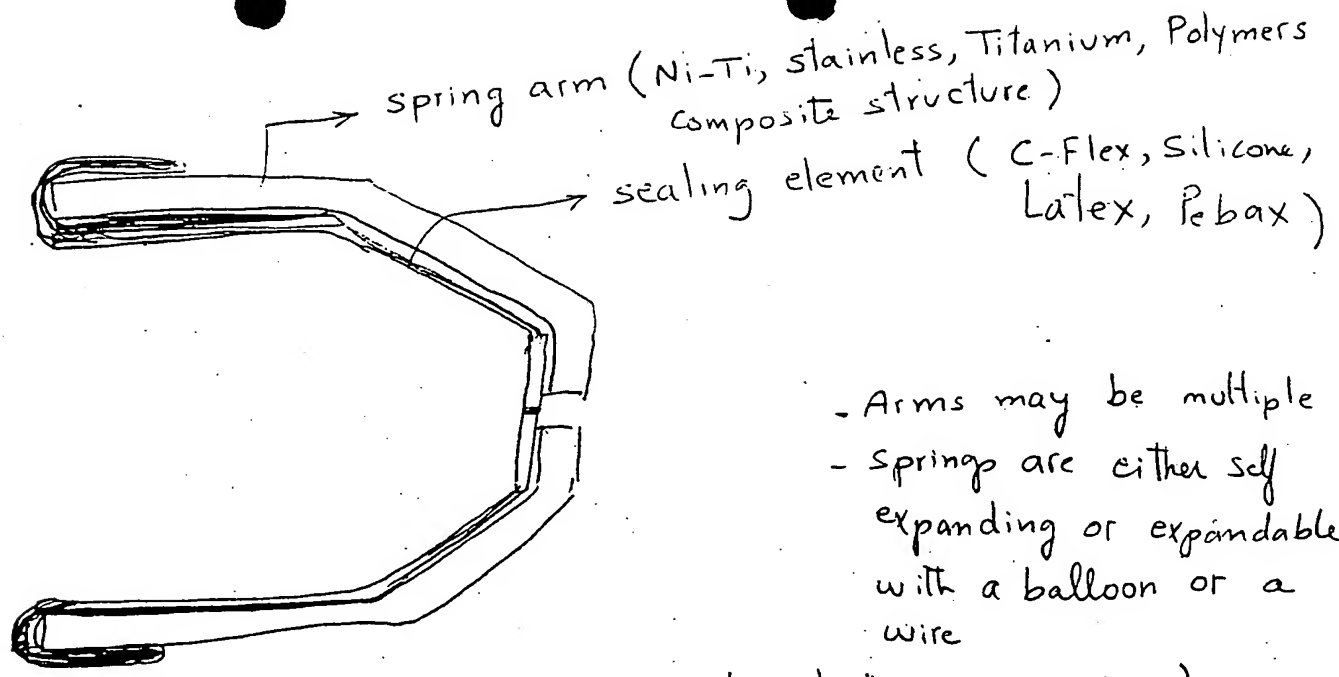 spring arm (Ni-Ti, stainless, Titanium, Polymers
composite structure)
sealing element ( C-Flex, Silicone,
Latex, Pebax )
- Arms may be multiple
- springs are either self
expanding or expandable
with a balloon or a
wire